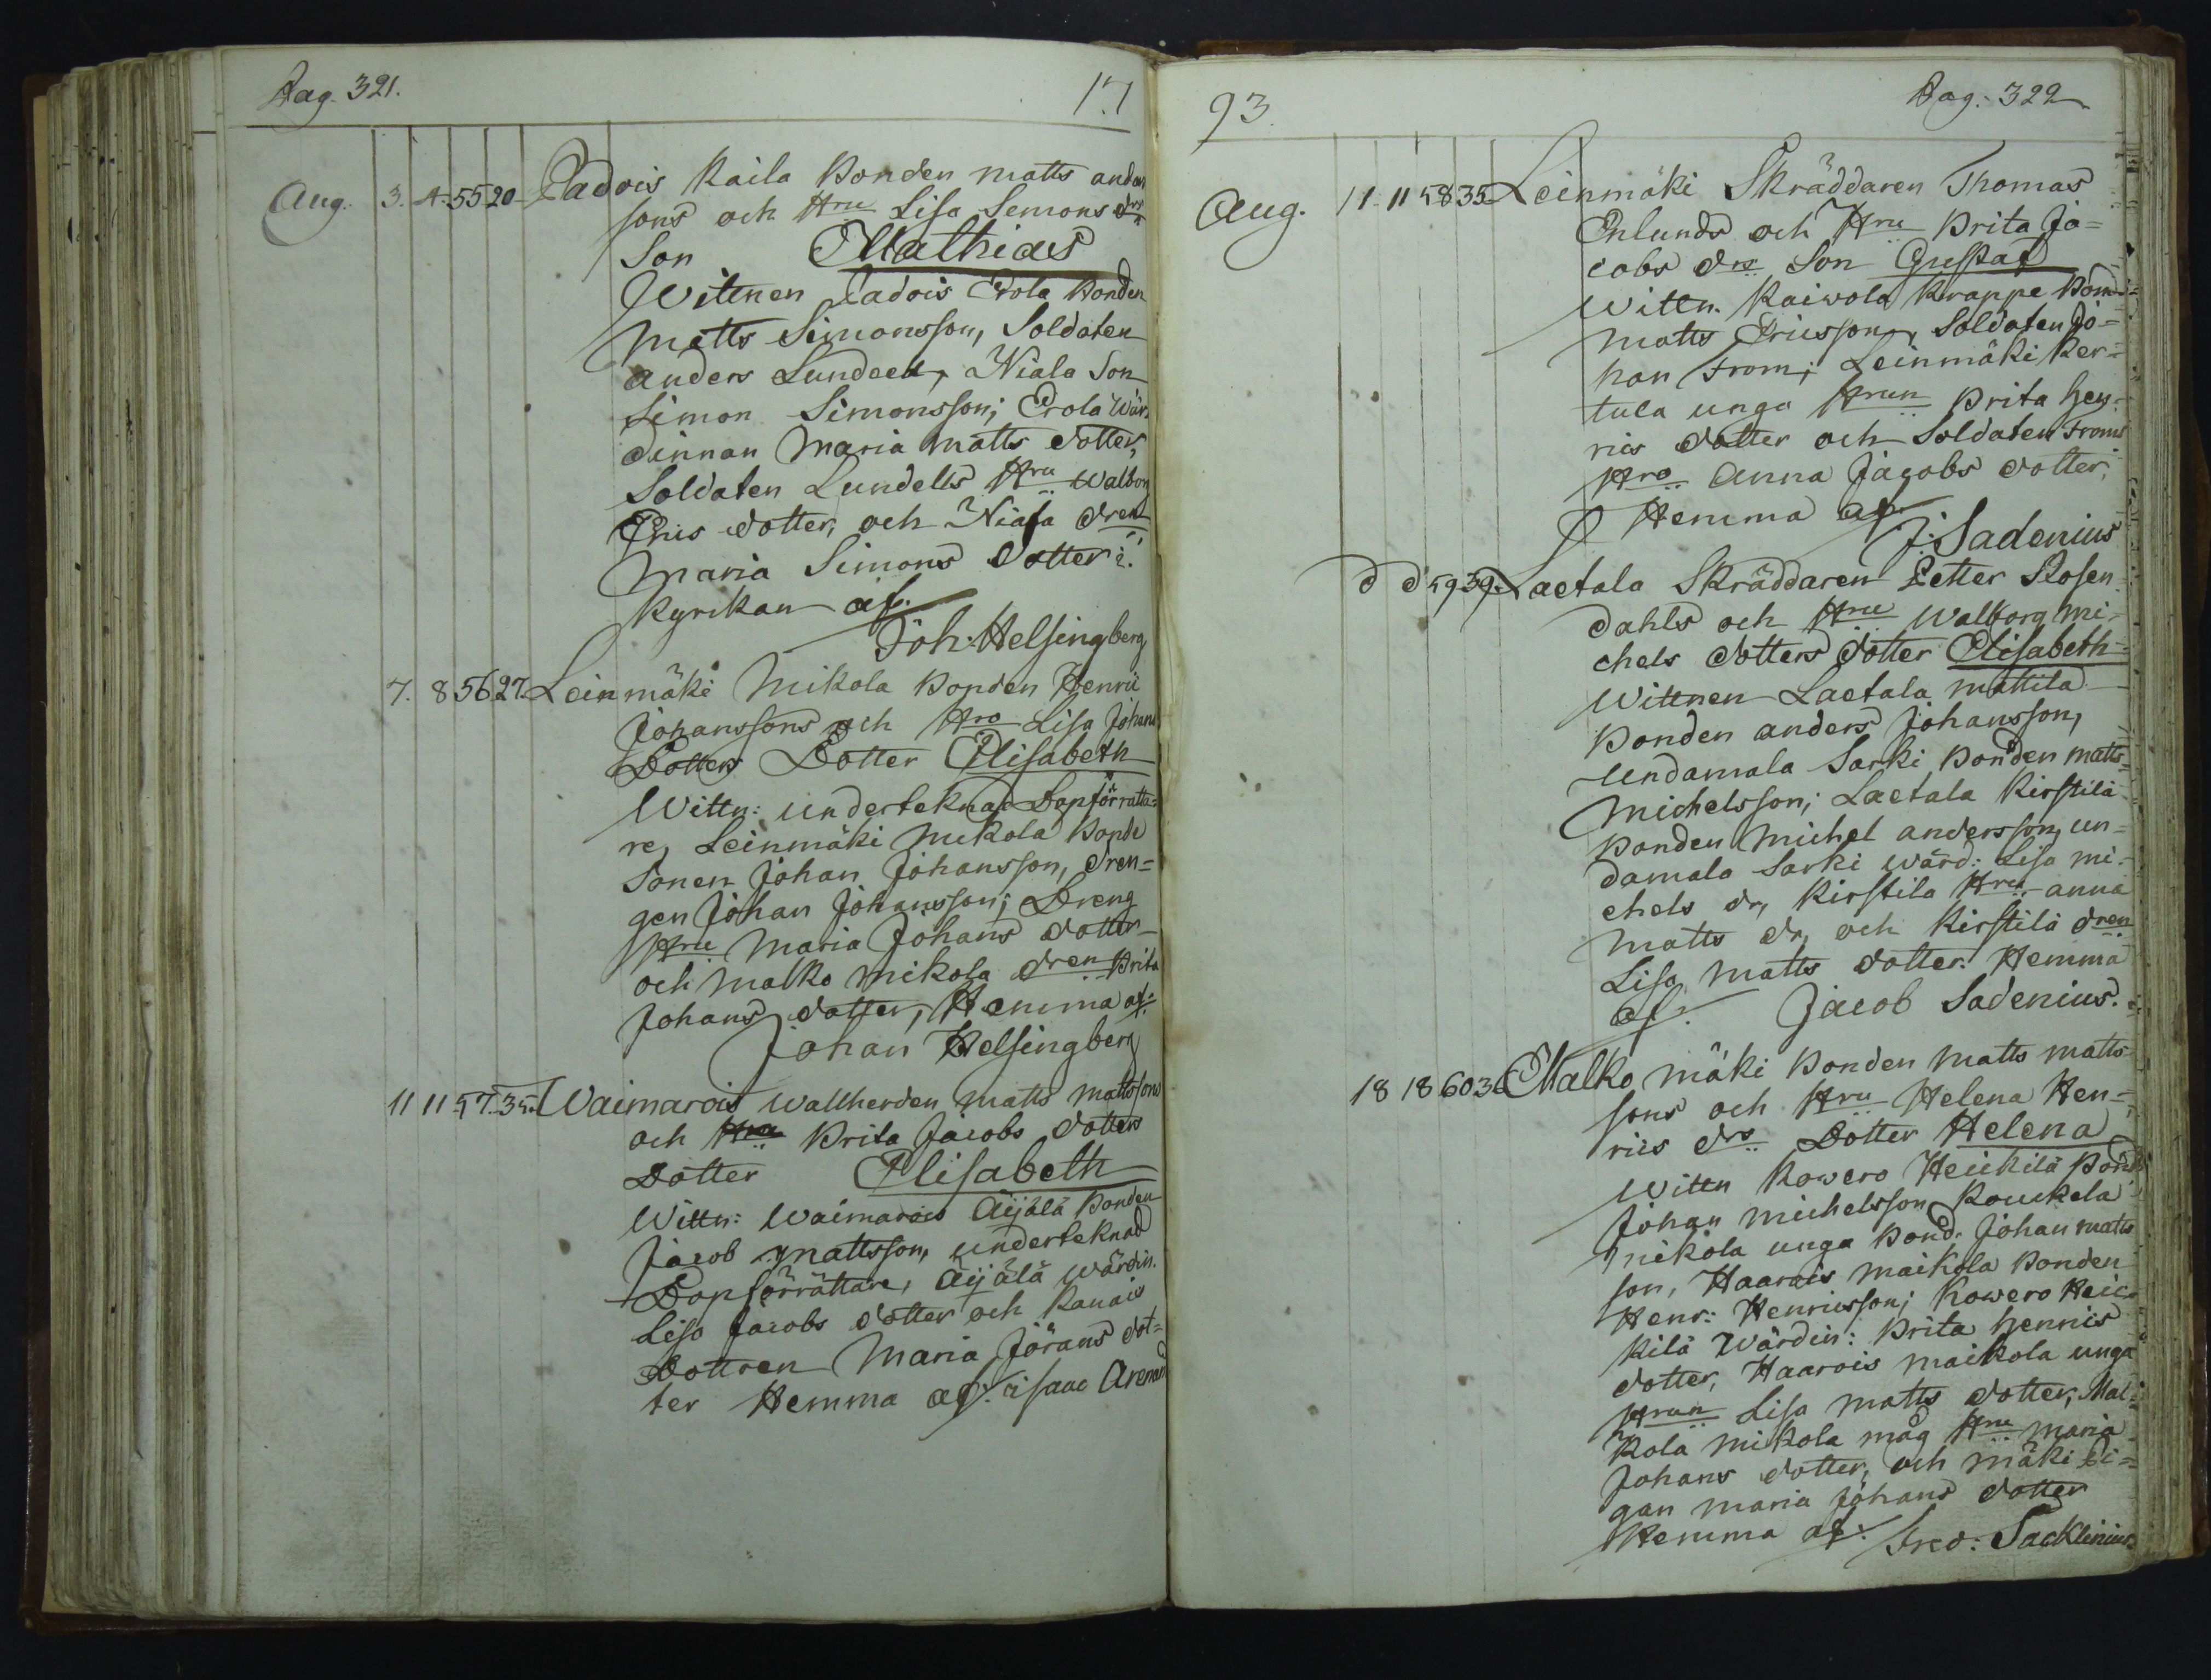 Pag. 321.
17
Aug. 3. 4. 55 20 Padois Kaila Bonden Matts anders
sons och Hru Lisa Simons drs
Son Mathias
Witnen Padois Erola Bonden
Matts Simonsson, Soldaten
anders Lundell, Niala Son
Simon Simonsson; Erola Wär-
dinnan Maria Matts dotter,
Soldaten Lundells Hru Walborg
Eris dotter, och Niala dren
Maria Simons dotter i
Kyrkan af.
Joh: Helsingberg
7. 8 56 27. Leinmäki Mikola Bonden Henric
Johanssons och Hro Lisa Johans
Dotters Dotter Elisabeth
Wittn: underteknad Dopförratta-
re, Leinmäki Mikola Bonde
Sonen Johan Johansson, dren=
gen Johan Johansson; Dreng
Hru Maria Johans dotter
och Malko Mikola dren Brita
Johans dotter, Hemma af.
Johan Helsingberg
11 11 57. 35. Waimarois Wallherden Matts Mattssons
och Hru Brita Jacobs dotters
Dotter Elisabeth
Wittn: Waimarois Äijälä Bonden
Jacob Mattsson, underteknad
Dopförrättare, Äijälä wärdin.
Lisa Jacobs dotter och Kanais
Dottren Maria Jörans dot=
ter Hemma af. isaac Arenand
93.
Pag. 322
Aug. 11 11 58 35 Leinmäki Skräddaren Thomas
Enlunds och Hru Brita Ja=
cobs drs Son Gustaf
Wittn. Kaiwola Krappe Bond
Matts Ericsson, Soldaten Jo=
han From; Leinmäki Ker=
tula unga Hrun Brita Hen=
rics dotter och Soldaten Froms
Hro Anna Jacobs dotter,
Hemma af.
J. Sadenius
d d 59 39. Laetala Skräddaren Petter Rosen
dahls och Hru Walborg Mi-
chels dotters dotter Elisabeth
Wittnen Laetala Mattila
Bonden anders Johansson,
Undamala Sarki Bonden Matts
Michelsson; Laetala Kirstilä
Bonden Michel andersson, un=
damala Sarki Wärd: Lisa Mi=
chels dr, Kirstila Hru anna
Matts dr, och Kirstilä dren
Lisa Matts dotter. Hemma
af. Jacob Sadenius.
18 18 60 36 Malko mäki Bonden Matts Matts
sons och Hru Helena Hen=
rics drs Dotter Helena
Wittn Kowero Heickilä Bond
Johan Michelsson, Kouckela
Mikola unga Bond. Johan Matts
son, Haarois Maikola Bonden
Henr: Henricsson; Kowero Heic
kilä Wärdin: Brita Henrics
dotter, Haarois Maikola unga
Hrun Lisa Matts dotter, Mal=
kola Mikola mag Hru Maria
Johans dotter, och mäki Pi=
gan Maria Johans dotter
Hemma af. Fred: Sacklinius